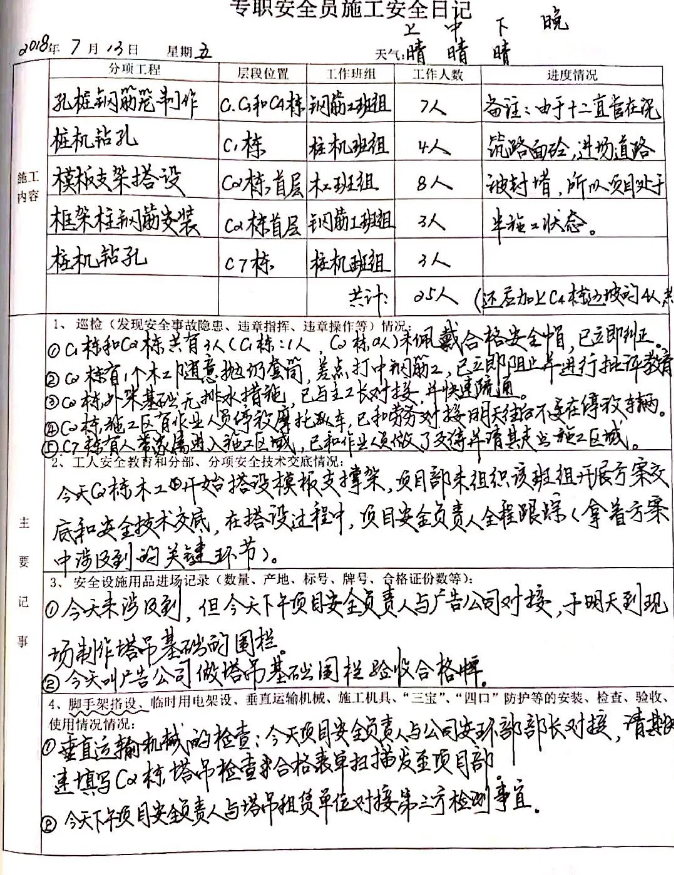 专职安全员施工安全日记
上 中 下 晚
2018年 7 月 13 日 星期 五 天气: 晴 晴 晴
分项工程 层段位置 工作班组 工作人数 进度情况
孔桩钢筋笼制作 钢筋工班组 7人 备注:由于十二直管在浇
桩机钻孔 C1栋 桩机班组 4人 筑路面砼,进场道路
施工内容
模板支架搭设 C2栋首层 木工班组 8人 被封堵,所以项目处于
框架柱钢筋安装 C2栋首层 钢筋工班组 3人 半施工状态。
桩机钻孔 C7栋 桩机班组 3人
共计: 25人 (还后加上C4栋
主要记事
1、巡检(发现安全事故隐患、违章指挥、违章操作等)情况:
①C1栋和C2栋共有3人(C1栋:1人,C2栋2人)未佩戴合格安全帽,已立即纠正。
②C2栋有1个木工随意抛扔套筒,差点打中钢筋工,已立即阻止并进行批评教育
③C2栋外架基础无排水措施,已与主工长对接,并快速疏通。
④C2栋施工区有作业人员停放摩托车,已和劳务对接明天往后不要在停放车辆。
⑤C7栋有人带家属进入施工区域,已和作业人员做了交待并请其走出施工区域。
2、工人安全教育和分部、分项安全技术交底情况:
今天C2栋木工开始搭设模板支撑架,项目部未组织该班组开展方案交
底和安全技术交底,在搭设过程中,项目安全负责人全程跟踪(拿着方案
中涉及到的关键环节)。
3、安全设施用品进场记录(数量、产地、标号、牌号、合格证份数等):
①今天未涉及到,但今天下午项目安全负责人与广告公司对接,于明天到现
场制作塔吊基础的围栏。
②今天叫广告公司做塔吊基础围栏验收合格牌。
4、脚手架搭设、临时用电架设、垂直运输机械、施工机具、“三宝”、“四口”防护等的安装、检查、验收、
使用情况情况:
①垂直运输机械的检查:今天项目安全负责人与公司安环部部长对接,请其快
速填写C2栋塔吊检查合格表单扫描发至项目部。
②今天下午项目安全负责人与塔吊租赁单位对接第三方检测事宜。